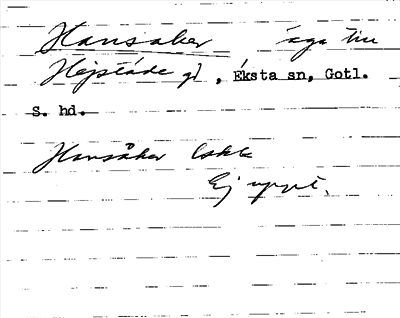 Hansaker äga till
Hejstäde gd, Eksta sn, Gotl.
S. hd.
Hansåker
Ej uppt.